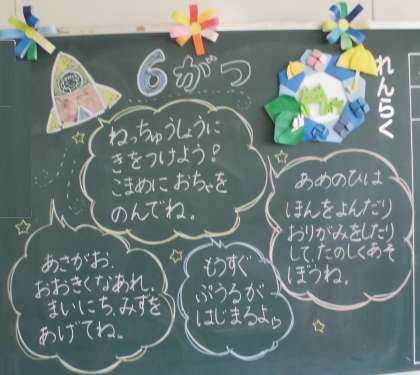 6がつ
れんらく
ねっちゅうしょうに
きをつけよう!
こまめに おちゃを
のんでね。
あめのひは
ほんをよんだり
おりがみをしたり
して、たのしくあそ
ぼうね。
あさがお、
おおきくなあれ。
まいにち、みずを
あげてね。
もうすぐ
ぷうるが
はじまるよ♪